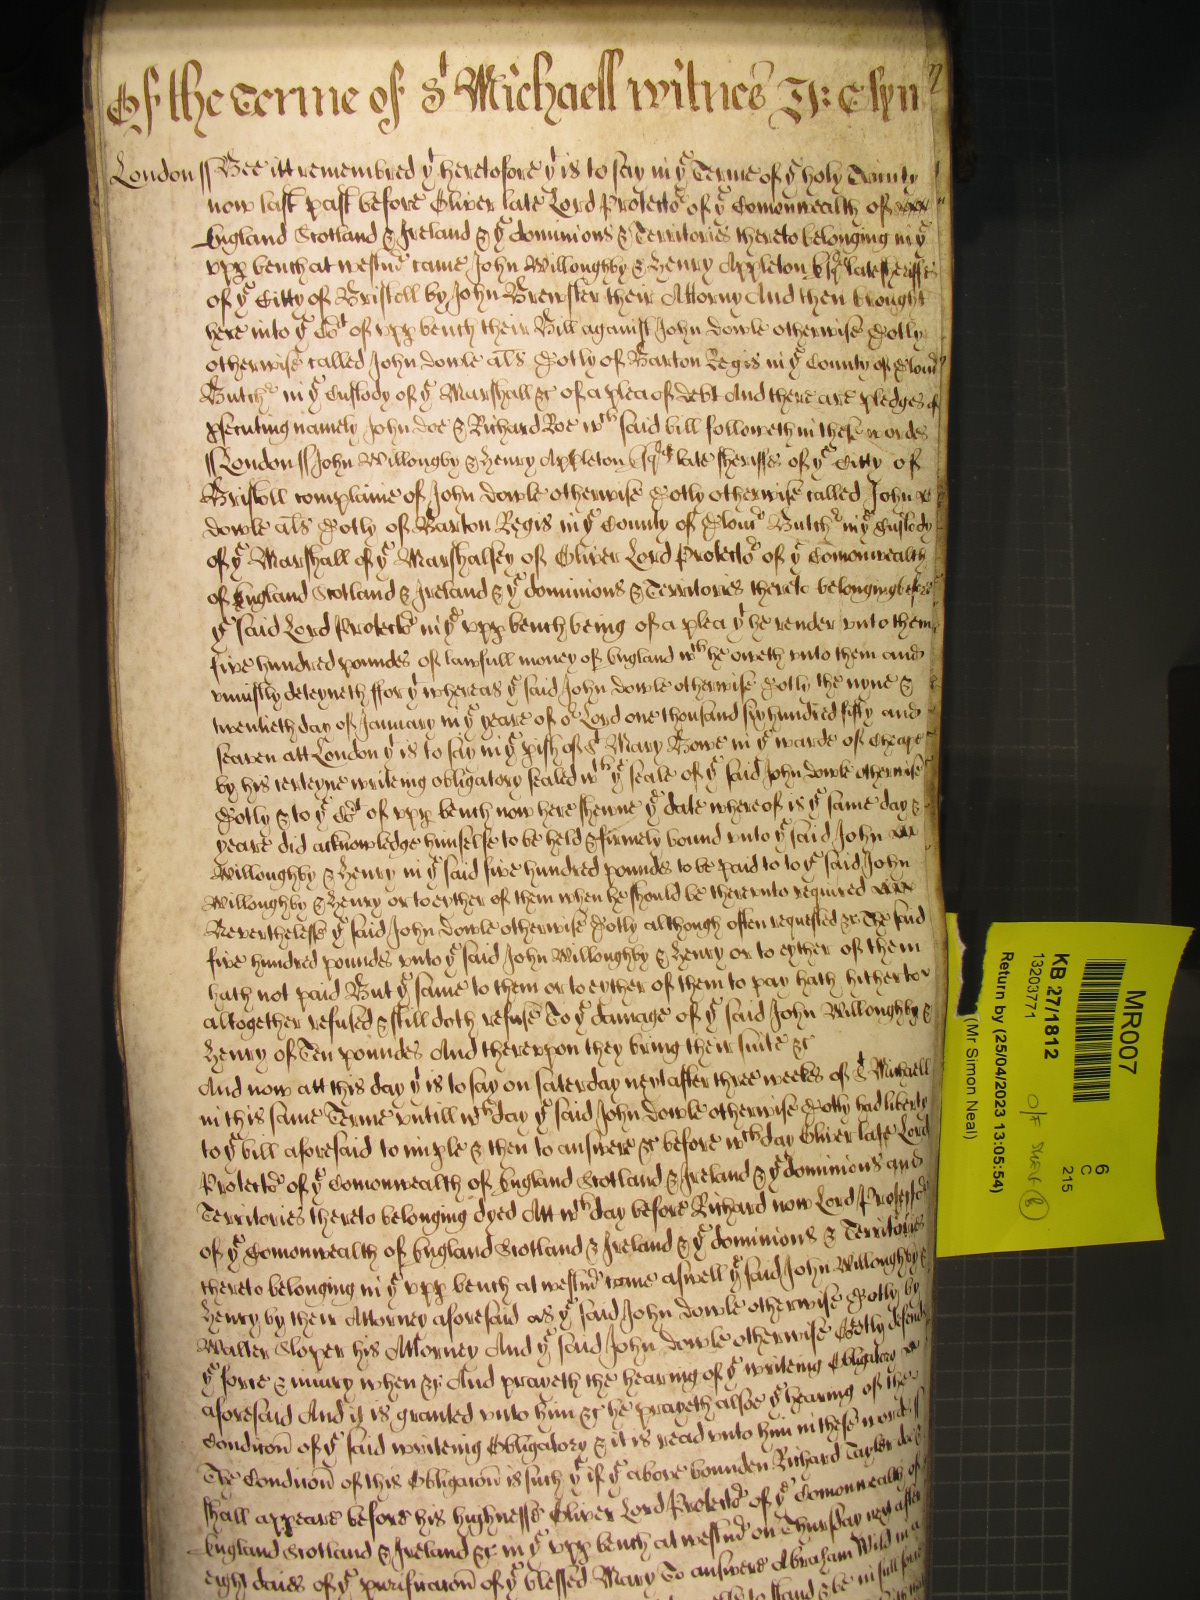 Of the Terme of St Michaell witnes Jo: Glyn
London ss Bee itt remembred yt heretofore yt is to say in ye Terme of ye holy Trinity
now last past before Oliver late Lord Protector of ye Comonwealth of
England Scotland & Ireland & ye dominions & Territories thereto belonging in ye
vpp bench at westmr came John Willoughby & Henry Appleton Esqrs late sheriffs
of ye Citty of Bristoll by John Brewster their Attorny And then brought
here into ye Cort of vpp bench their Bill against John Dowle otherwise Gotly
otherwise called John Dowle als Gotly of Barton Regis in ye County of Glouc
Butchr in ye Custody of ye Marshall &c of a plea of debt And there are pledges of
psecuting namely John Doe & Richard Roe wch said bill followeth in these wordes
ss London ss John Willongby & Henry Appleton Esqrs late sheriffs of ye Citty of
Bristoll complaine of John Dowle otherwise Gotly otherwise called John
Dowle als Gotly of Barton Regis in ye County of Glouc Butchr in ye Custody
of ye Marshall of ye Marshalsey of Oliver Lord Protector of ye Comonwealth
of England Scotland & Ireland & ye dominions & Territories thereto belonging before
ye said Lord Protector in ye vpp bench being of a plea yt he render vnto them
five hundred poundes of lawfull money of England wch he oweth vnto them and
vniustly deteyneth ffor yt whereas ye said John Dowle otherwise Gotly the nyne &
twentieth day of January in ye yeare of or Lord one thousand six hundred fifty and
seaven att London yt is to say in ye pish of St Mary Bowe in ye warde of Cheape
by his certeyne writeing obligatory sealed wth ye seale of ye said John Dowle otherwise
Gotly & to ye Cort of vpp bench now here shewne ye date whereof is ye same day &
yeare did acknowledge himselfe to be held & firmely bound vnto ye said John
Willoughby & Henry in ye said five hundred poundes to be paid to to ye said John
Willoughby & Henry or to eyther of them when he should be therevnto required
Neverthelesse ye said John Dowle otherwise Gotly although often requested &c The said
five hundred poundes vnto ye said John Willoughby & Henry or to eyther of them
hath not paid But ye same to them or to eyther of them to pay hath hitherto
altogether refused & still doth refuse To ye damage of ye said John Willoughby &
Henry of Ten poundes And therevpon they bring their suite &c
And now att this day yt is to say on Saterday next after three weekes of St Michaell
in this same Terme vntill wch day ye said John Dowle otherwise Gotly had liberty
to ye bill aforesaid to imple & then to answere &c before wch day Oliver late Lord
Protector of ye Comonwealth of England Scotland & Ireland & ye dominions and
Territories thereto belonging dyed Att wch day before Richard now Lord Protector
of ye Comonwealth of England Scotland & Ireland & ye dominions & Territories
thereto belonging in ye vpp bench at westmr came aswell ye said John Willoughby &
Henry by their Attorney aforesaid as ye said John Dowle otherwise Gotly by
Walter Sloper his Attorney And ye said John Dowle otherwise Gotly defends
ye force & iniury when &c And prayeth the hearing of ye writeing Obligatory
aforesaid And it is granted vnto him &c he prayeth alsoe ye hearing of the
Condicon of ye said writeing Obligatory & it is read vnto him in these wordes ss
The Condicon of this Obligacon is such yt if ye above bounden Richard Tayler
shall appeare before his highnesse Oliver Lord Protector of ye Comonwealth of
England Scotland & Ireland &c in ye vpp bench at westmr on Thursday next after
eight daies of ye purificacon of ye blessed Mary To answere Abraham Wild in a
to stand & be in full
MR007
6
C
215
KB 27/1812
13203771
Return by (25/04/2023 13:05:54)
(Mr Simon Neal)